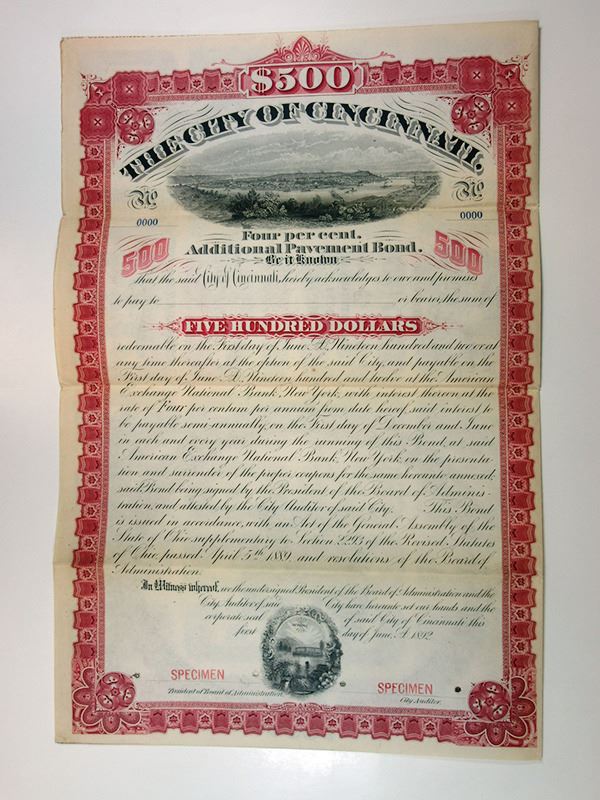 $500
THE CITY OF CINCINNATI.
No No
0000 0000
Four per cent.
500 Additional Pavement Bond. 500
Be it Known
that the said City of Cincinnati, hereby acknowledges to owe and promises
to pay to or bearer, the sum of
FIVE HUNDRED DOLLARS
redeemable on the First day of June A.D. Nineteen hundred and two or at
any time thereafter at the option of the said City, and payable on the
First day of June A.D. Nineteen hundred and twelve at the American
Exchange National Bank, New York, with interest thereon at the
rate of Four per centum per annum from date hereof, said interest to
be payable semi-annually, on the First day of December and June
in each and every year during the running of this Bond, at said
American Exchange National Bank, New York, on the presenta-
tion and surrender of the proper coupons for the same hereunto annexed;
said Bond being signed by the President of the Board of Adminis-
tration, and attested by the City Auditor of said City. This Bond
is issued in accordance with an Act of the General Assembly of the
State of Ohio supplementary to Section 2293 of the Revised Statutes
of Ohio, passed April 5th 1889, and resolutions of the Board of
Administration.
In Witness whereof, we the undersigned President of the Board of Administration and the
City Auditor of said City have hereunto set our hands and the
corporate seal of said City of Cincinnati this
first day of June, A.D. 1892
SPECIMEN SPECIMEN
President of Board of Administration. City Auditor.